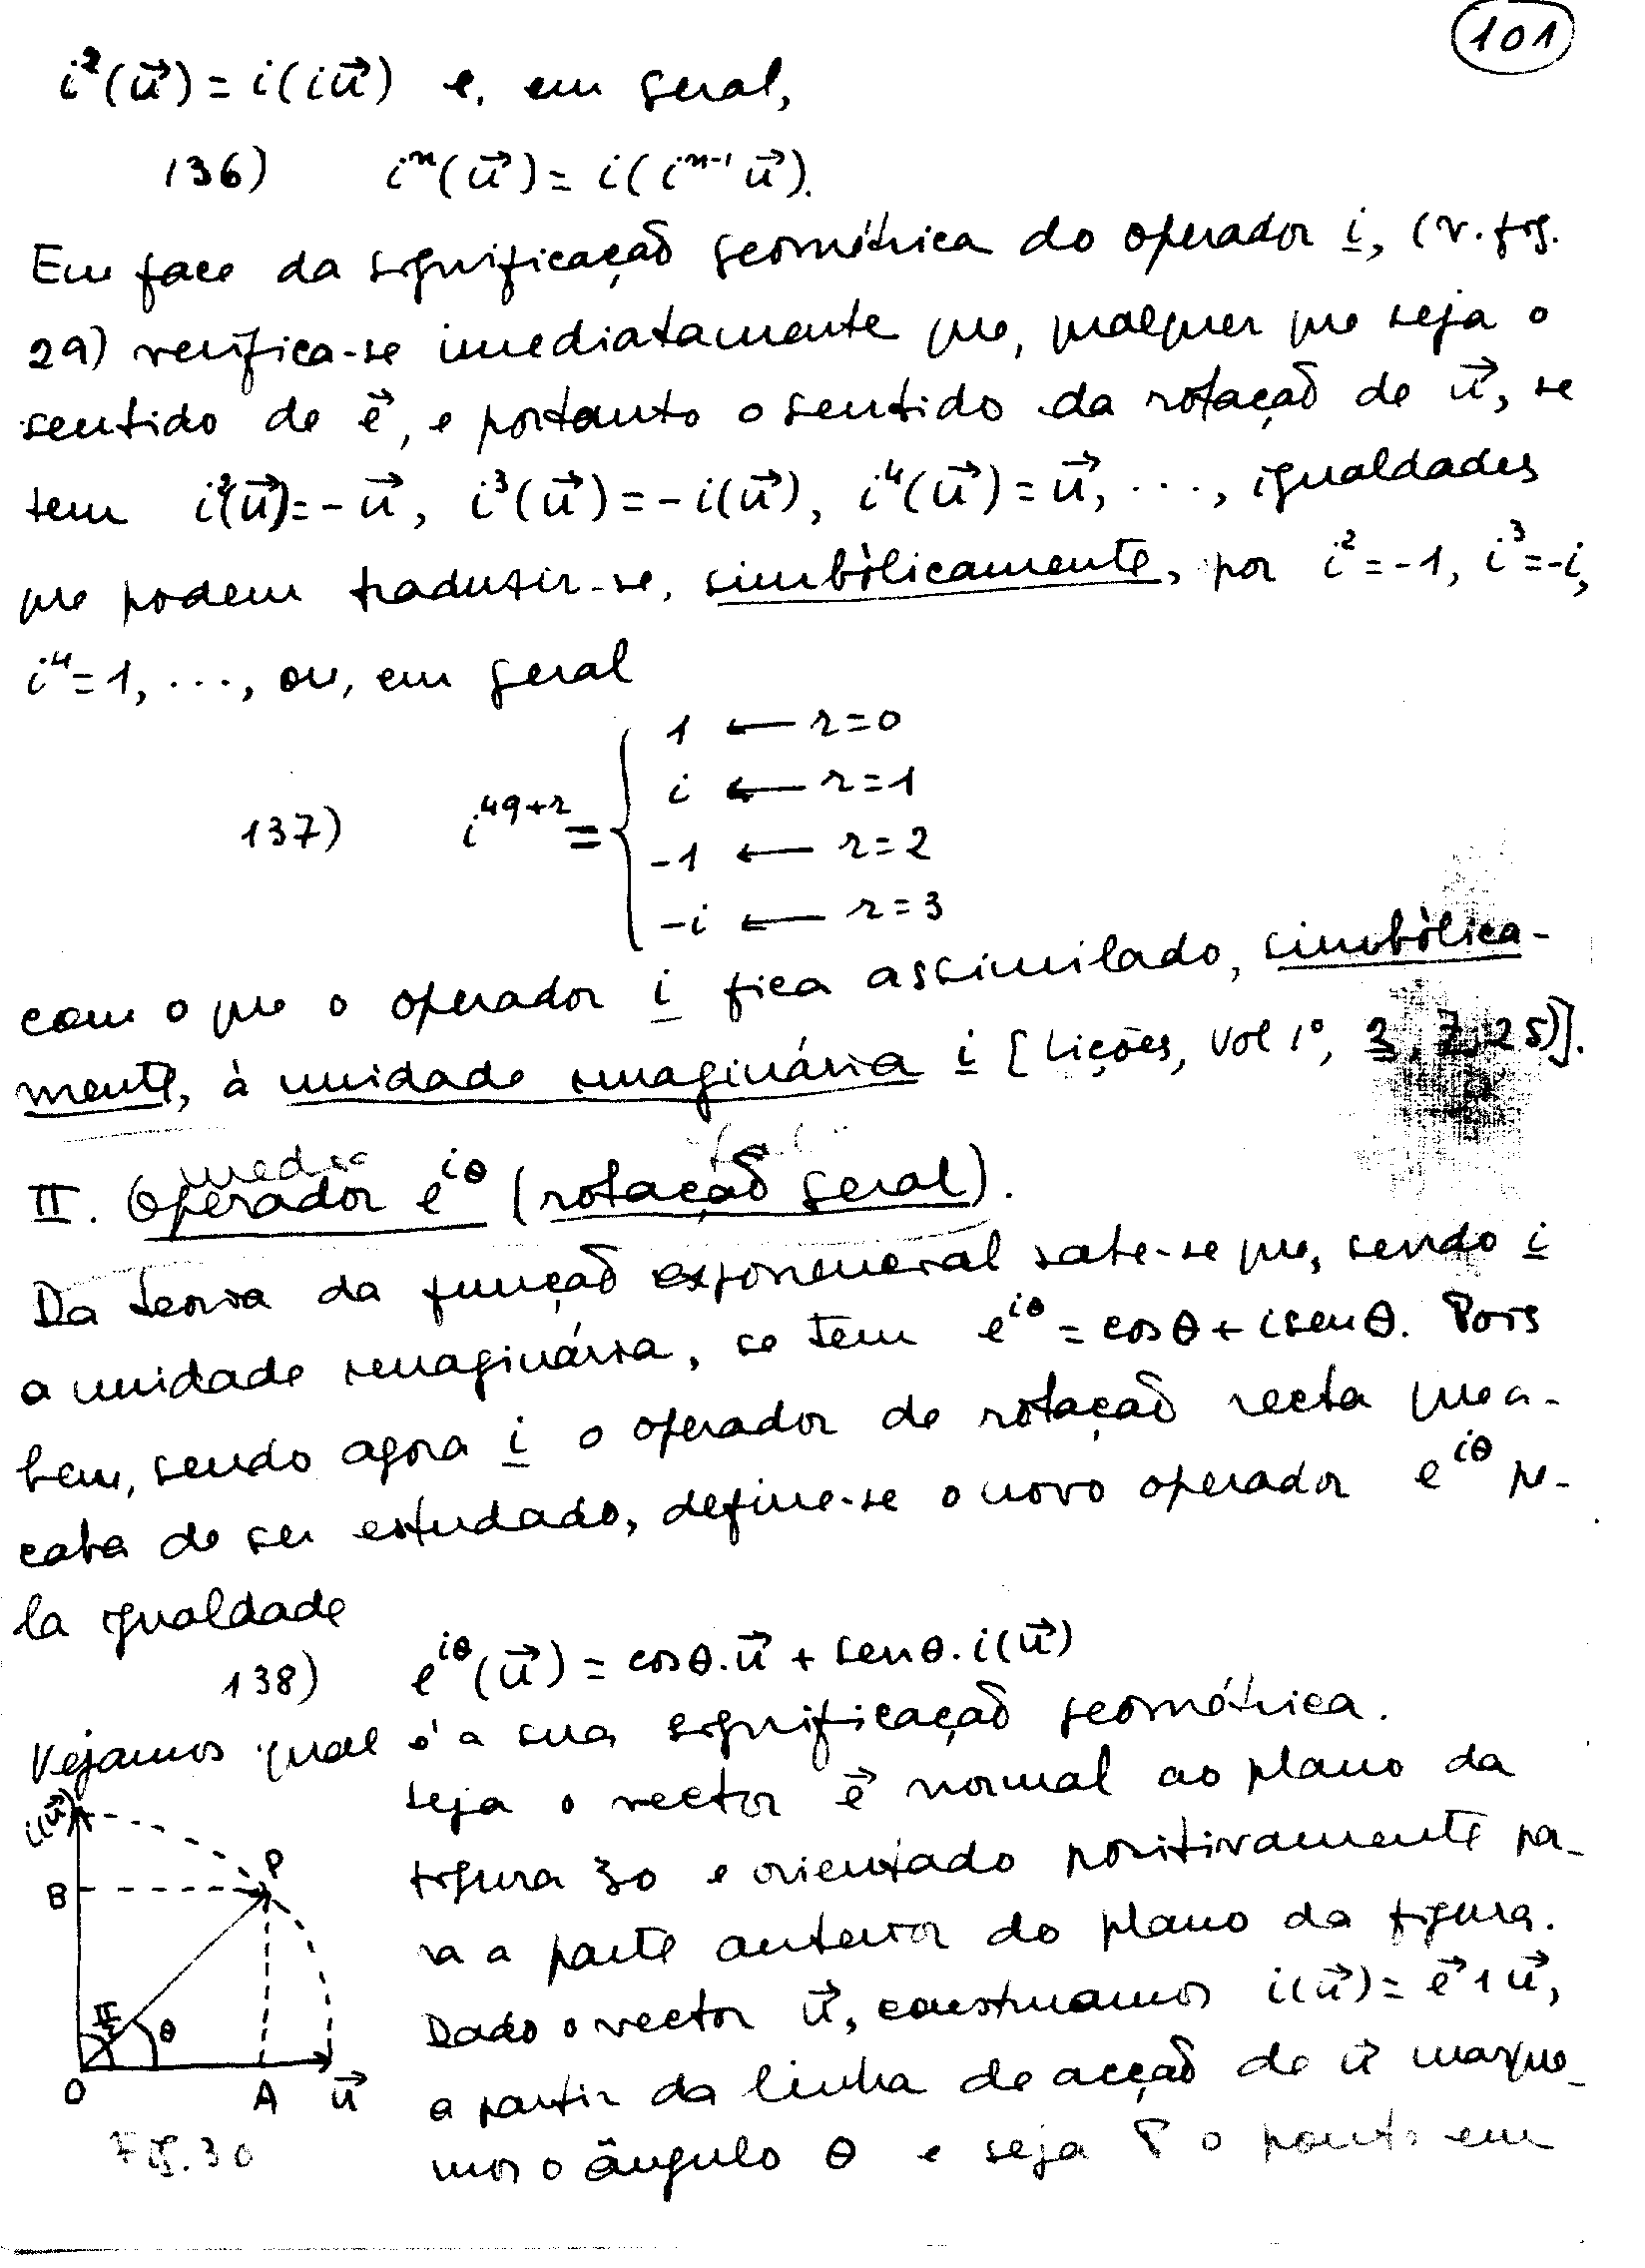 101
i²(u⃗) = i(iu⃗) e, em geral,
136) iⁿ(u⃗) = i(iⁿ⁻¹u⃗).
Em face da significação geométrica do operador i, (v. fig.
29) verifica-se imediatamente que, qualquer que seja o
sentido de e⃗, e portanto o sentido da rotação de u⃗, se
tem i²(u⃗) = -u⃗, i³(u⃗) = -i(u⃗), i⁴(u⃗) = u⃗, ..., igualdades
que podem traduzir-se, simbòlicamente, por i² = -1, i³ = -i,
i⁴ = 1, ..., ou, em geral
1 ← r=0
i ← r=1
137) i^{4q+r} = {
-1 ← r=2
-i ← r=3
com o que o operador i fica assimilado, simbòlica-
mente, à unidade imaginária i [Lições, Vol 1º, 3, 7, 25)].
II. Operador e^{iθ} (rotação geral).
Da teoria da função exponencial sabe-se que, sendo i
a unidade imaginária, se tem e^{iθ} = cosθ + i senθ. Pois
bem, sendo agora i o operador de rotação recta que a-
caba de ser estudado, define-se o novo operador e^{iθ} pe-
la igualdade
138) e^{iθ}(u⃗) = cosθ.u⃗ + senθ.i(u⃗)
Vejamos qual é a sua significação geométrica.
Seja o vector e⃗ normal ao plano da
figura 30 e orientado positivamente pa-
ra a parte anterior do plano da figura.
Dado o vector u⃗, construamos i(u⃗) = e⃗ ∧ u⃗,
a partir da linha de acção de u⃗ marque-
mos o ângulo θ e seja P o ponto em
i(u⃗)
P
B
π/2
θ
O A u⃗
Fig. 30